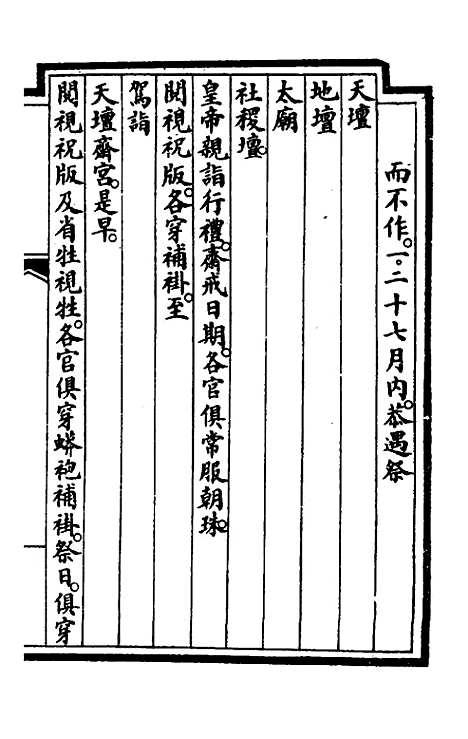 而不作。一。二十七月內。恭遇祭
天壇
地壇
太廟
社稷壇。
皇帝親詣行禮。齋戒日期。各官俱常服朝珠。
閱視祝版。各穿補褂。至
駕詣
天壇齋宮。是早。
閱視祝版及省牲視牲。各官俱穿蟒袍補褂。祭日。俱穿